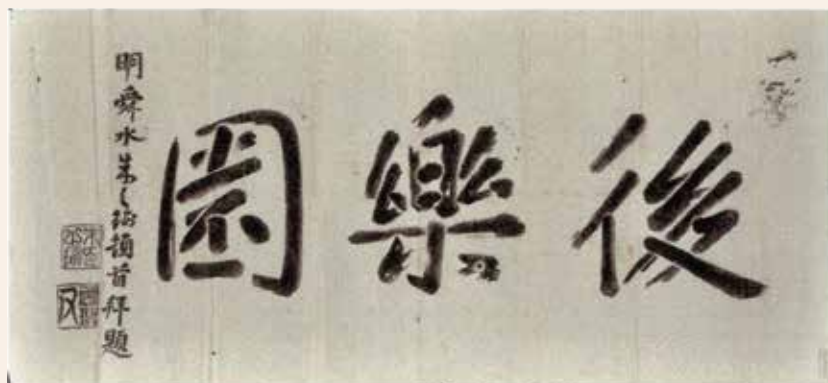 後樂園
明舜水朱之瑜頓首拜題